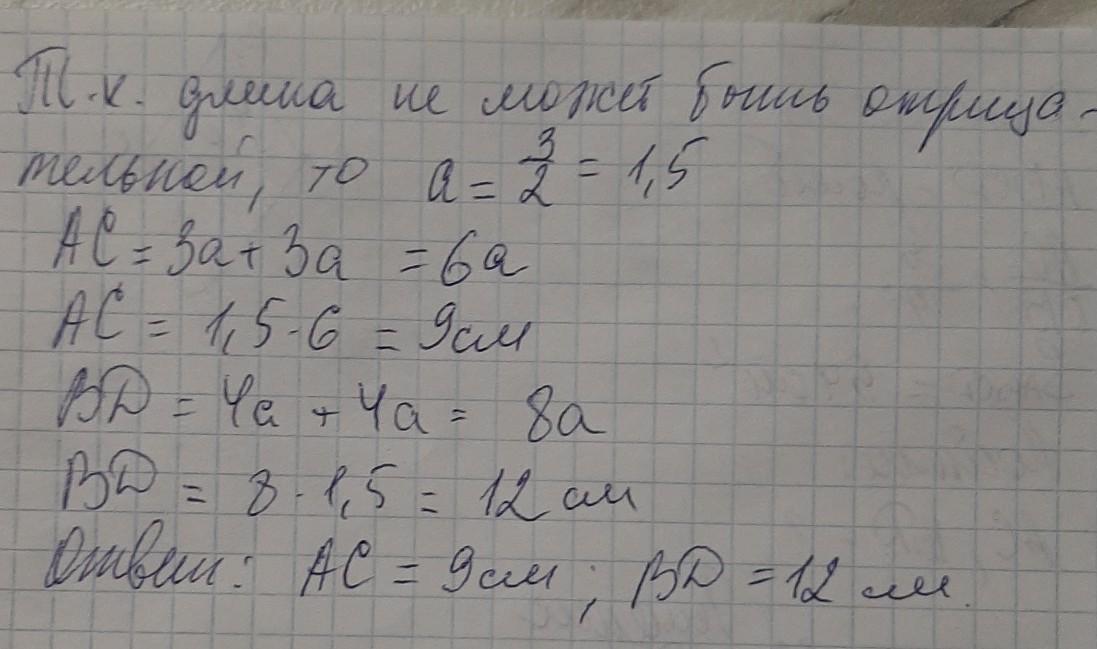 Т.к. длина не может быть отрица-
тельной, то a = 3/2 = 1,5
AC = 3a + 3a = 6a
AC = 1,5 · 6 = 9 см
BD = 4a + 4a = 8a
BD = 8 · 1,5 = 12 см
Ответ: AC = 9 см ; BD = 12 см.